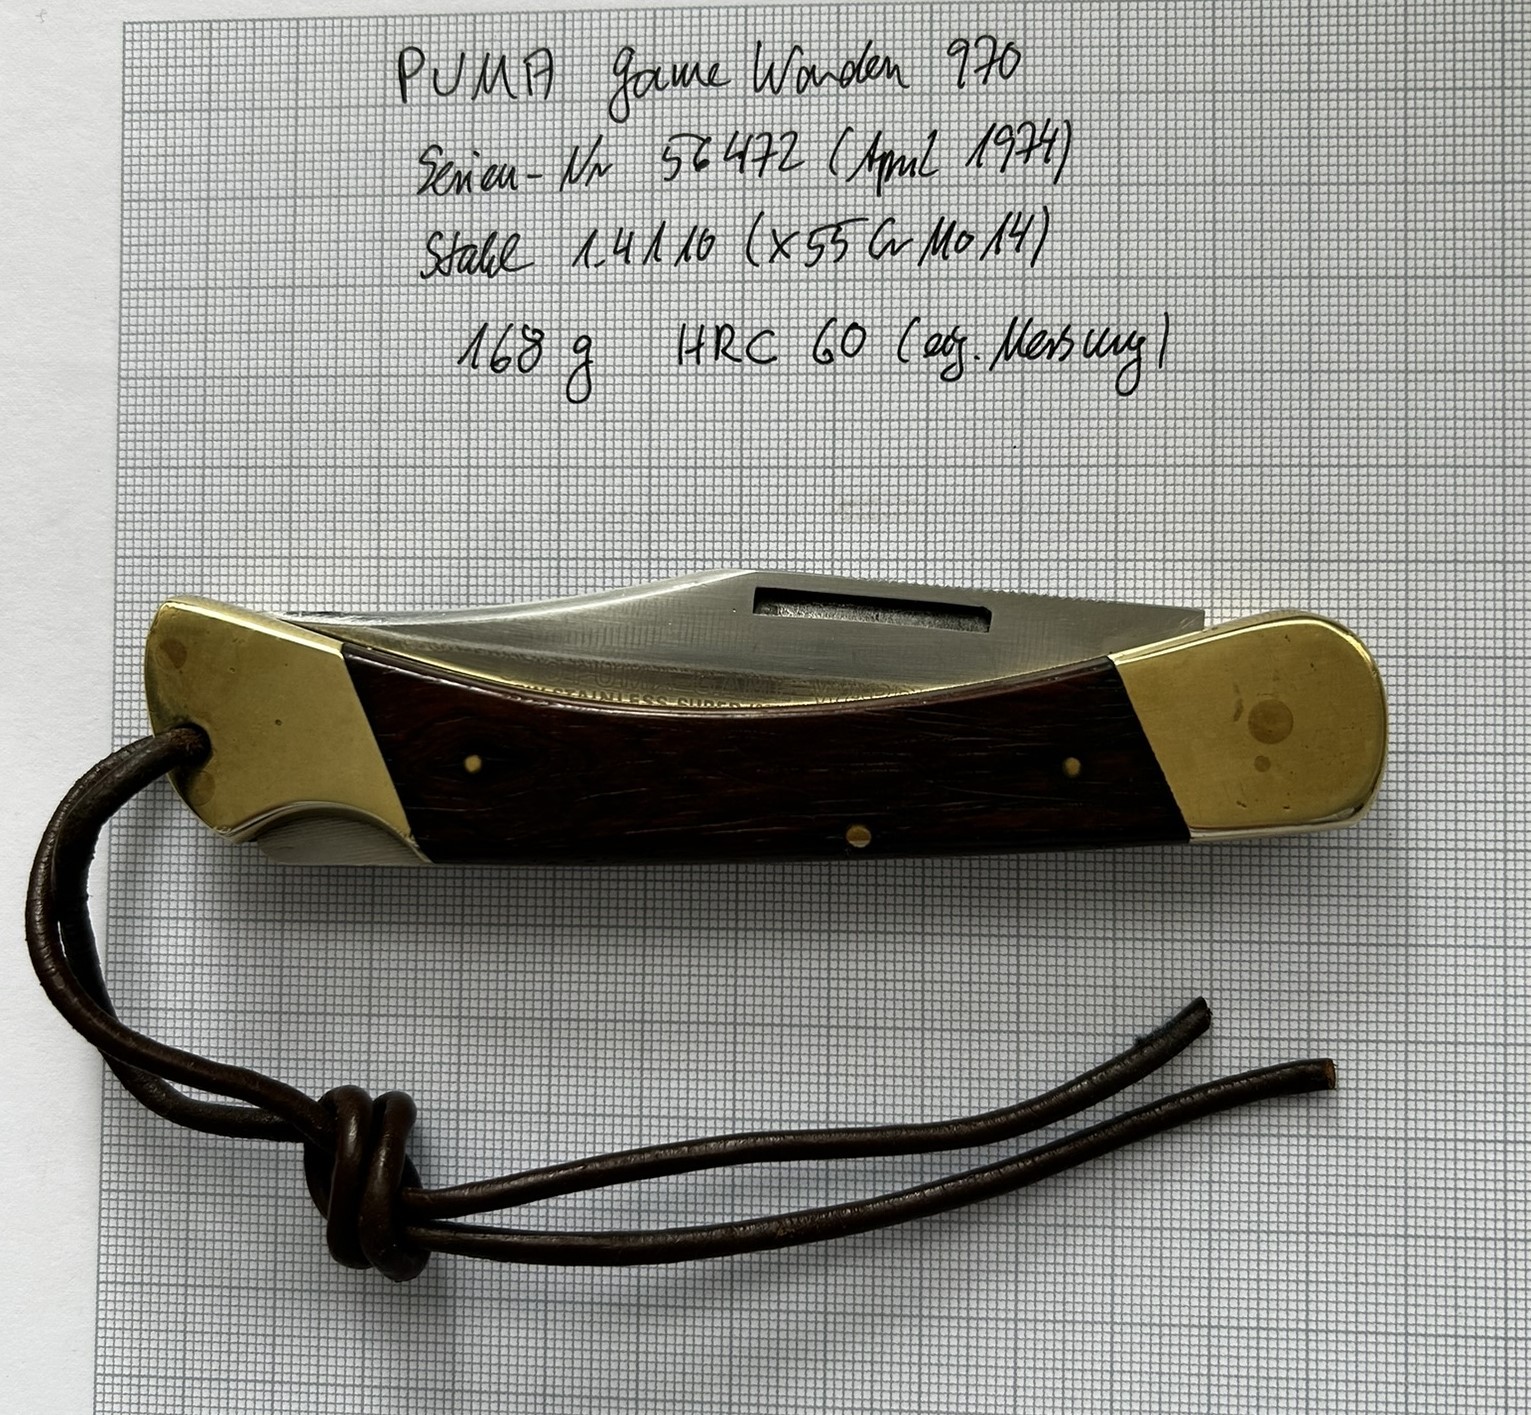 PUMA Game Warden 970
Serien-Nr 56472 (April 1974)
Stahl 1.4110 (X55CrMo14)
168 g HRC 60 (eig. Messung)
STAINLESS SUPER